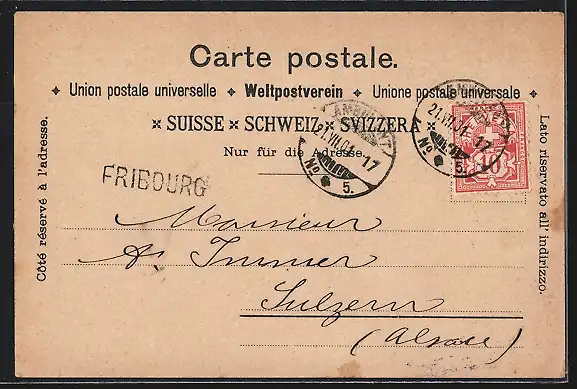 Carte postale.
Union postale universelle Weltpostverein Unione postale universale
SUISSE SCHWEIZ SVIZZERA
Nur für die Adresse.
Côté réservé à l'adresse.
Lato riservato all' indirizzo.
FRIBOURG
AMBULANT
21.VII.01. 17
No 5.
AMBULANT
21.VII.01. 17
No 5.
10
Monsieur
A. Immer
Sulzern
(Alsace)